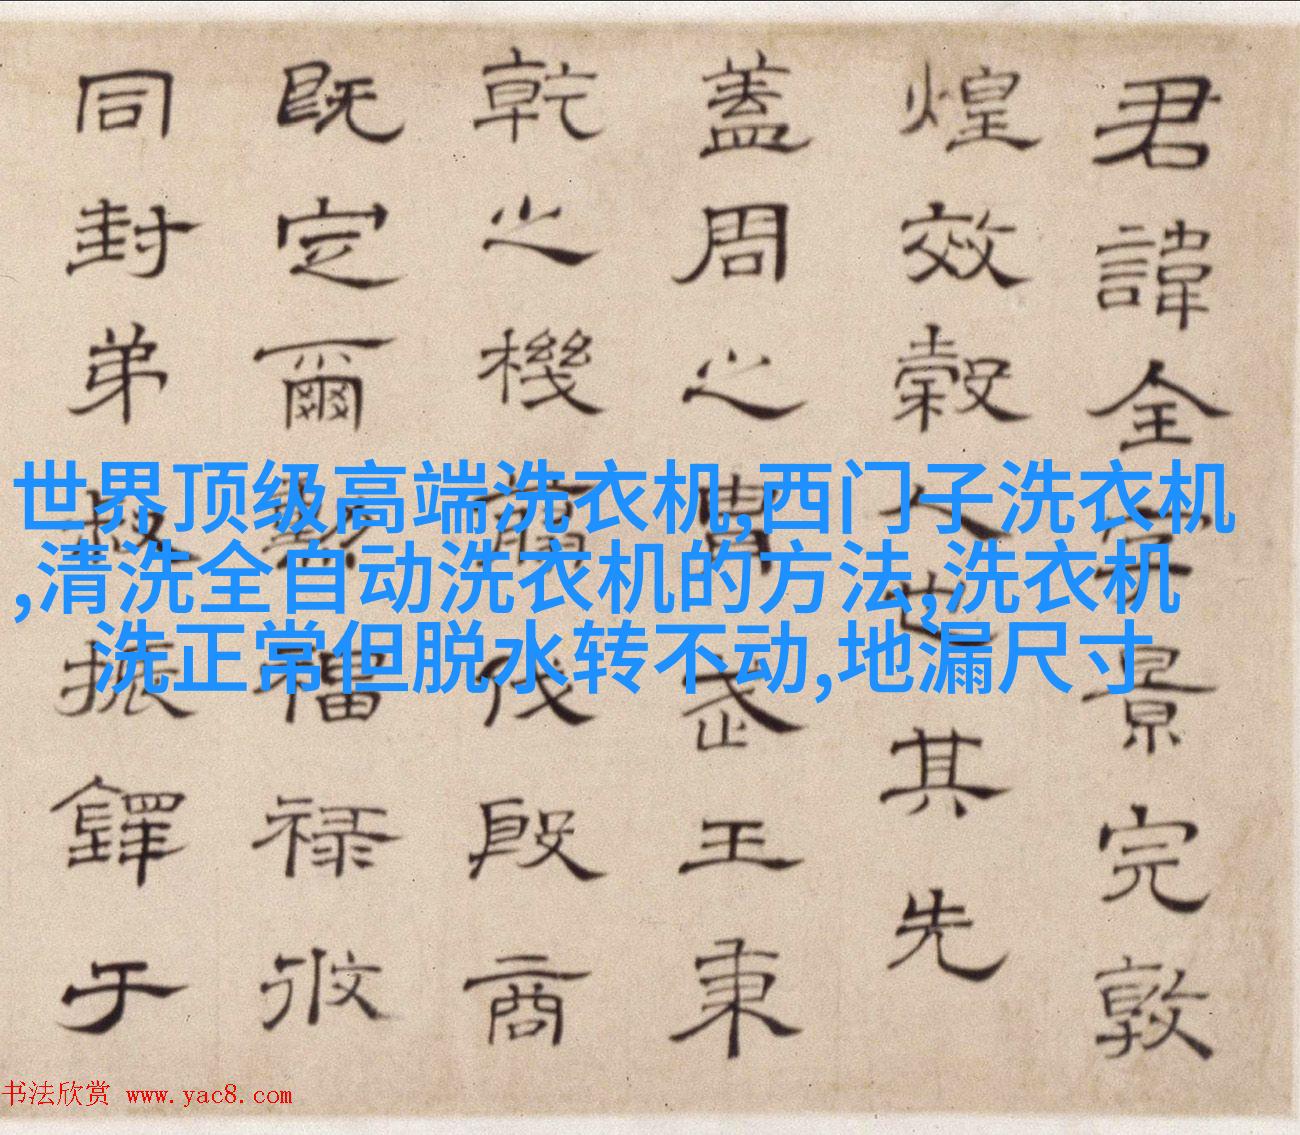 君諱全字景完敦
煌效穀人也其先
蓋周之胄武王秉
乾之機翦伐殷商
既定爾勳福祿攸
同封弟叔振鐸于
世界顶级高端洗衣机,西门子洗衣机
,清洗全自动洗衣机的方法,洗衣机
洗正常但脱水转不动,地漏尺寸
书法欣赏 www.yac8.com